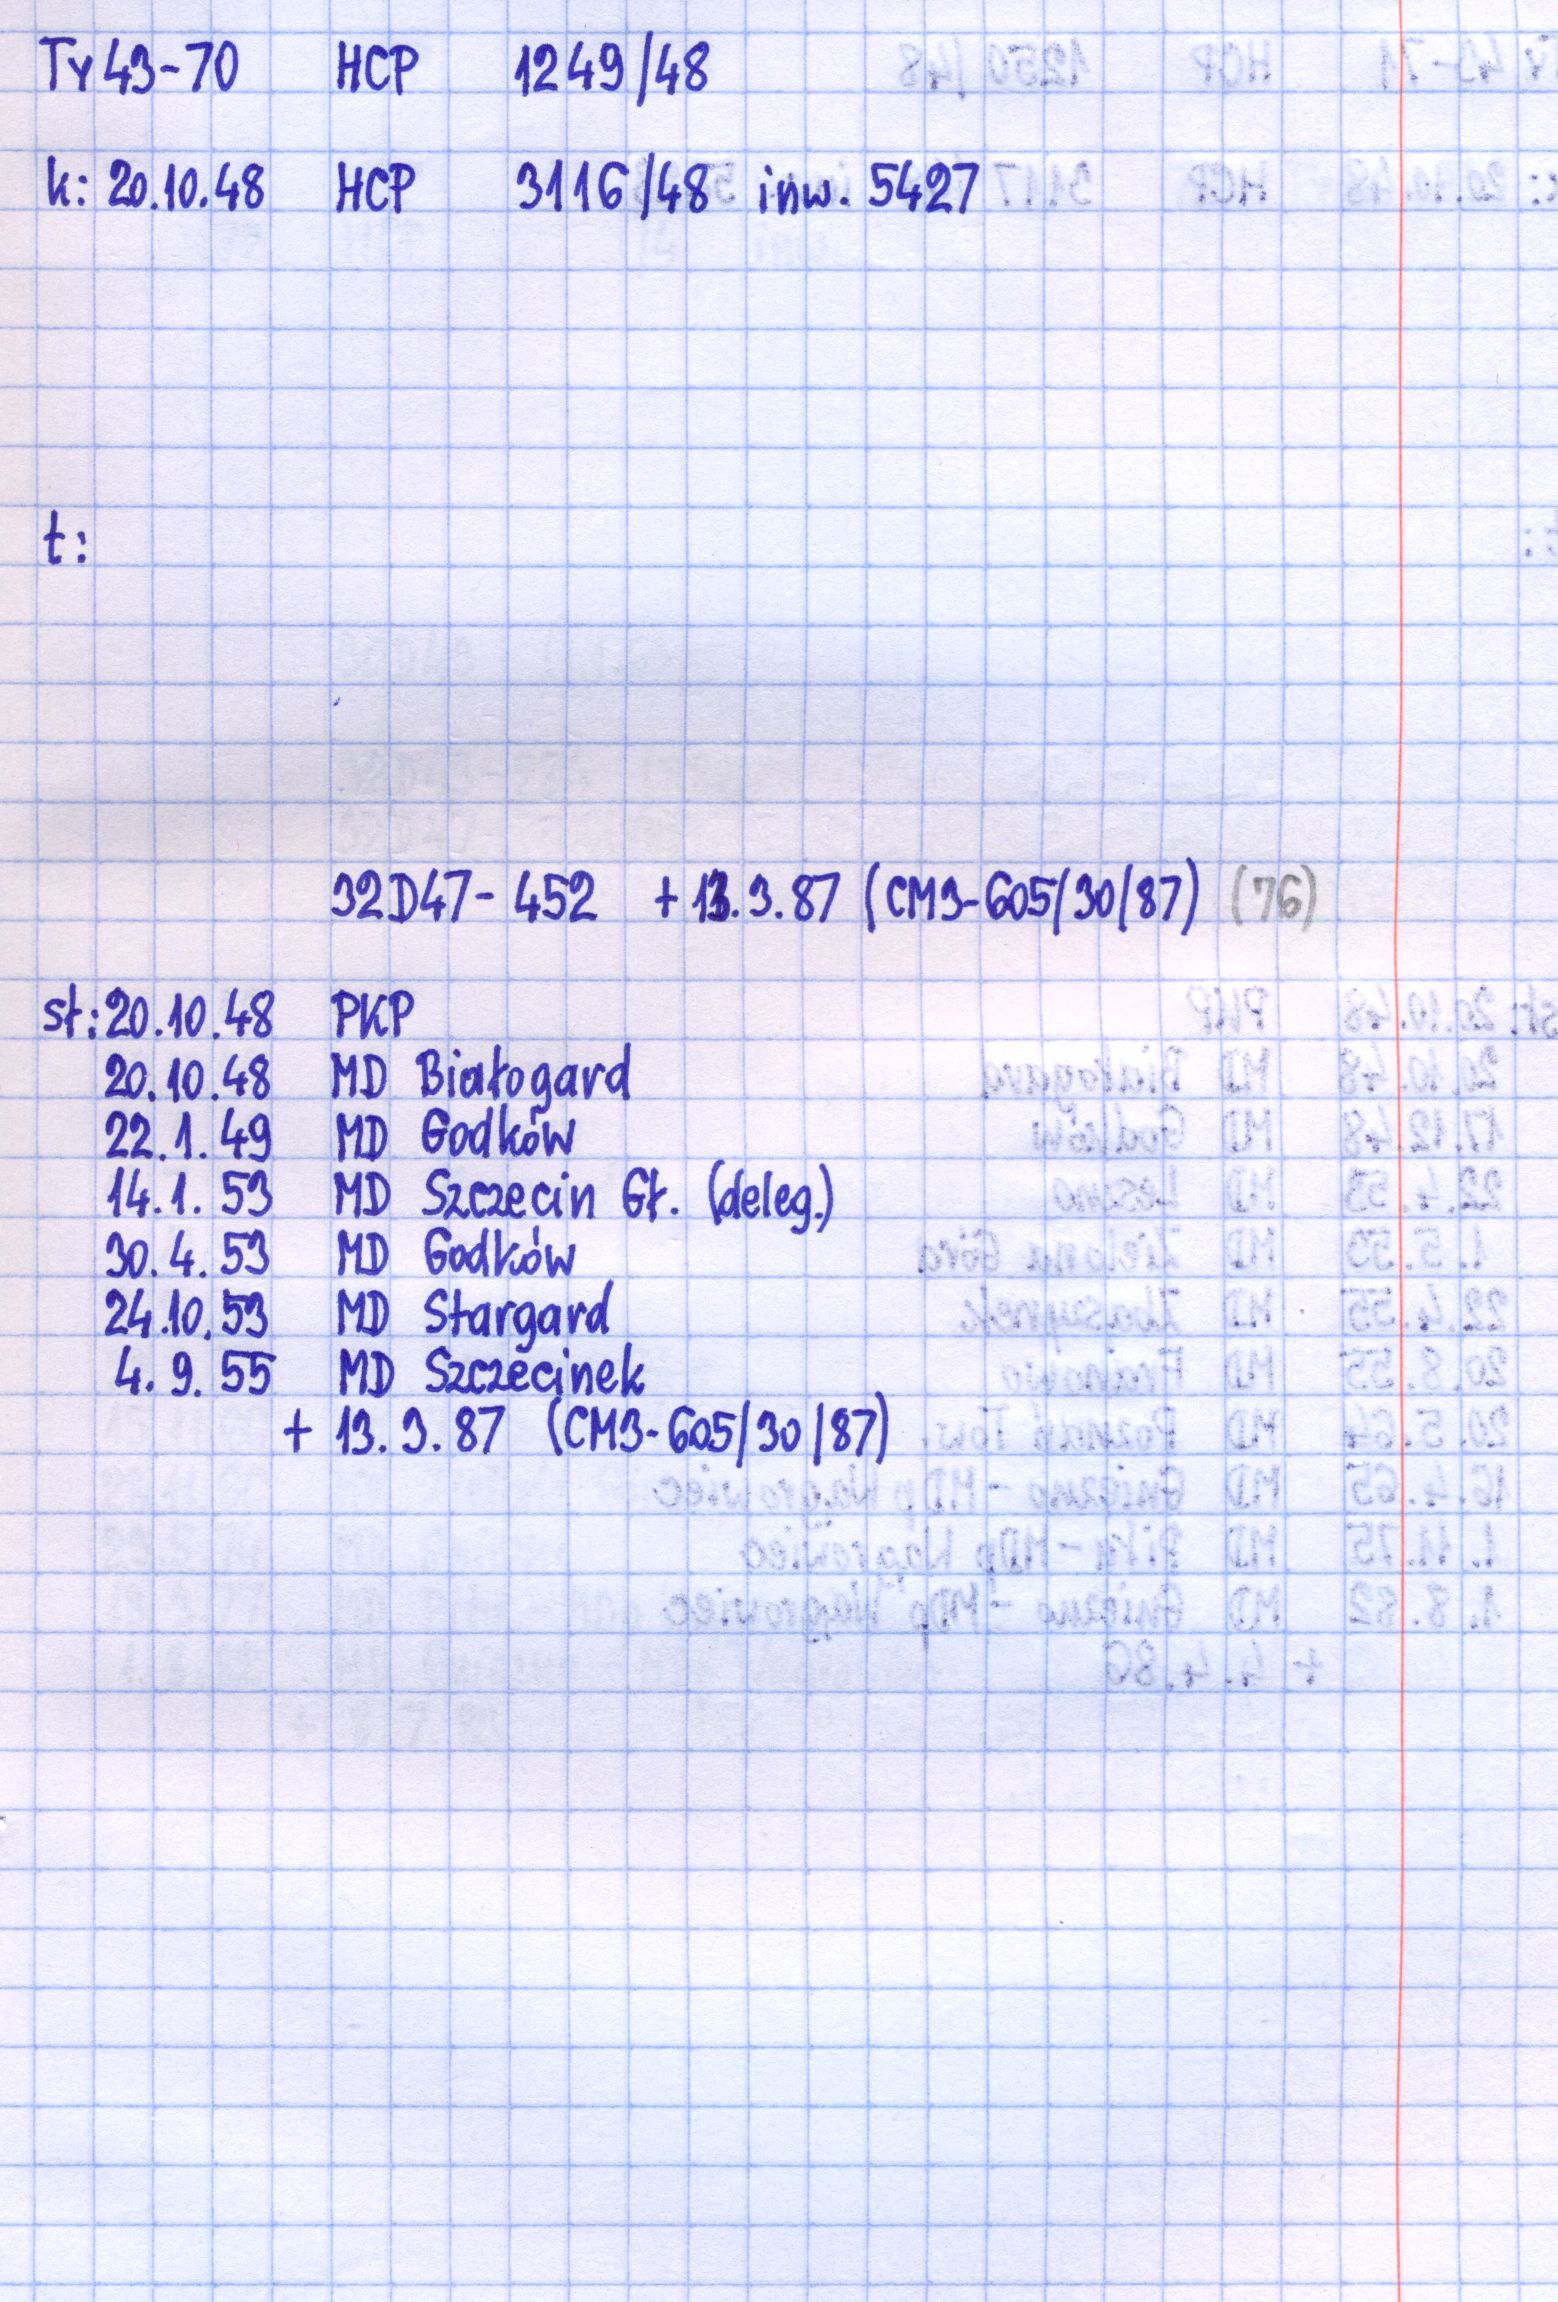 Ty43-70 HCP 1249/48
k: 20.10.48 HCP 3116/48 inw. 5427
t:
32D47-452 + 13.3.87 (CM3-605/30/87) (76)
st: 20.10.48 PKP
20.10.48 MD Białogard
22.1.49 MD Godków
14.1.53 MD Szczecin Gł. (deleg.)
30.4.53 MD Godków
24.10.53 MD Stargard
4.9.55 MD Szczecinek
+ 13.3.87 (CM3-605/30/87)